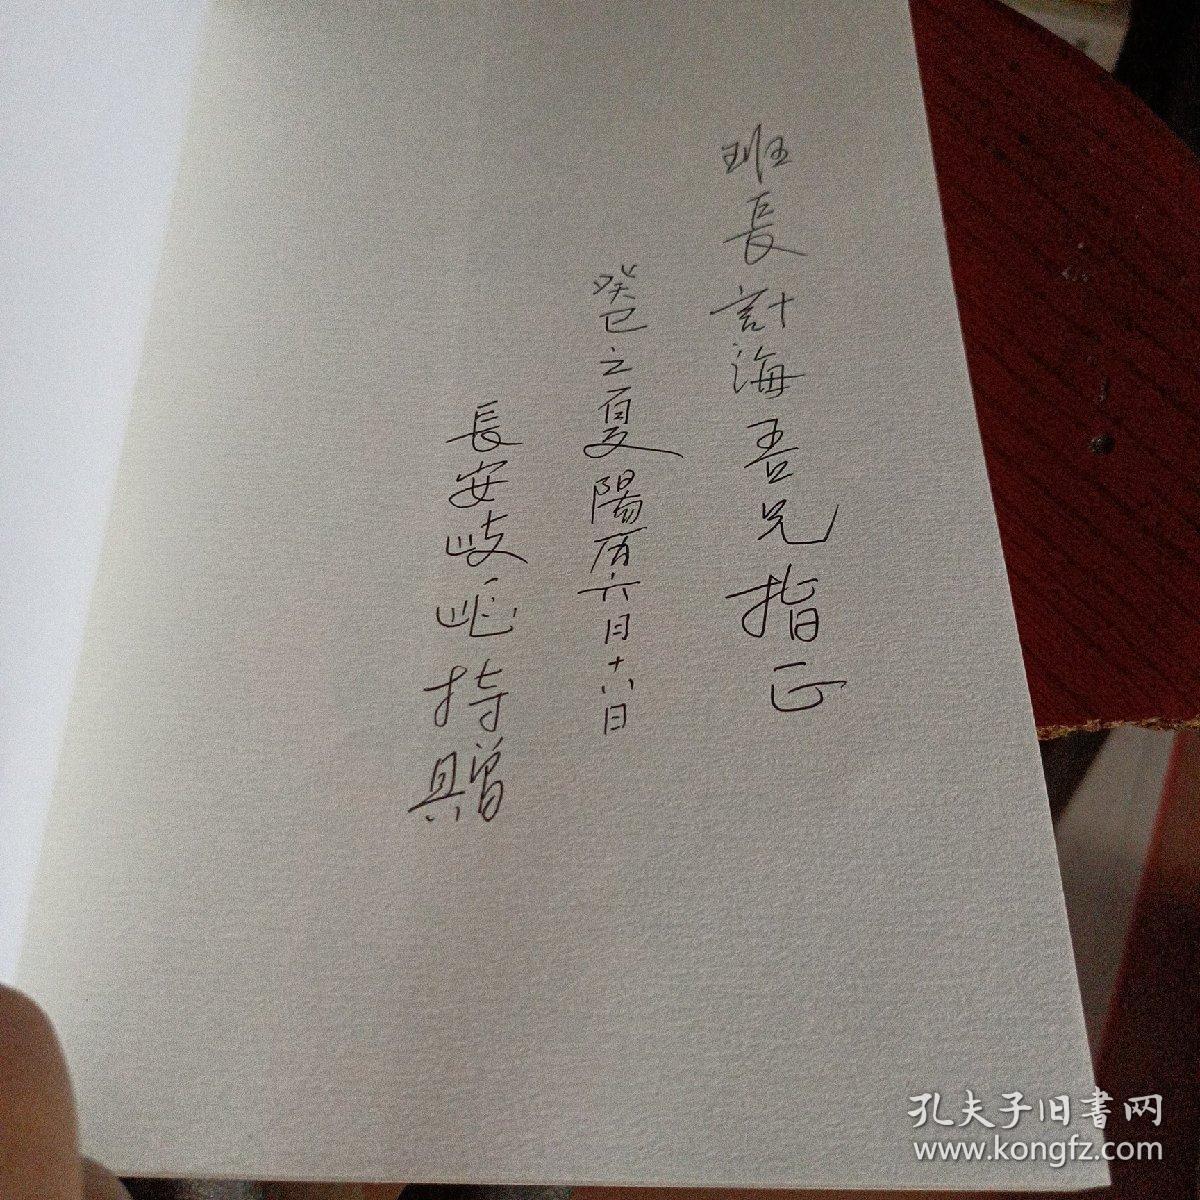 班長計海吾兄指正
癸巳之夏陽历六月十八日
長安岐岖持贈
孔夫子旧書网
www.kongfz.com